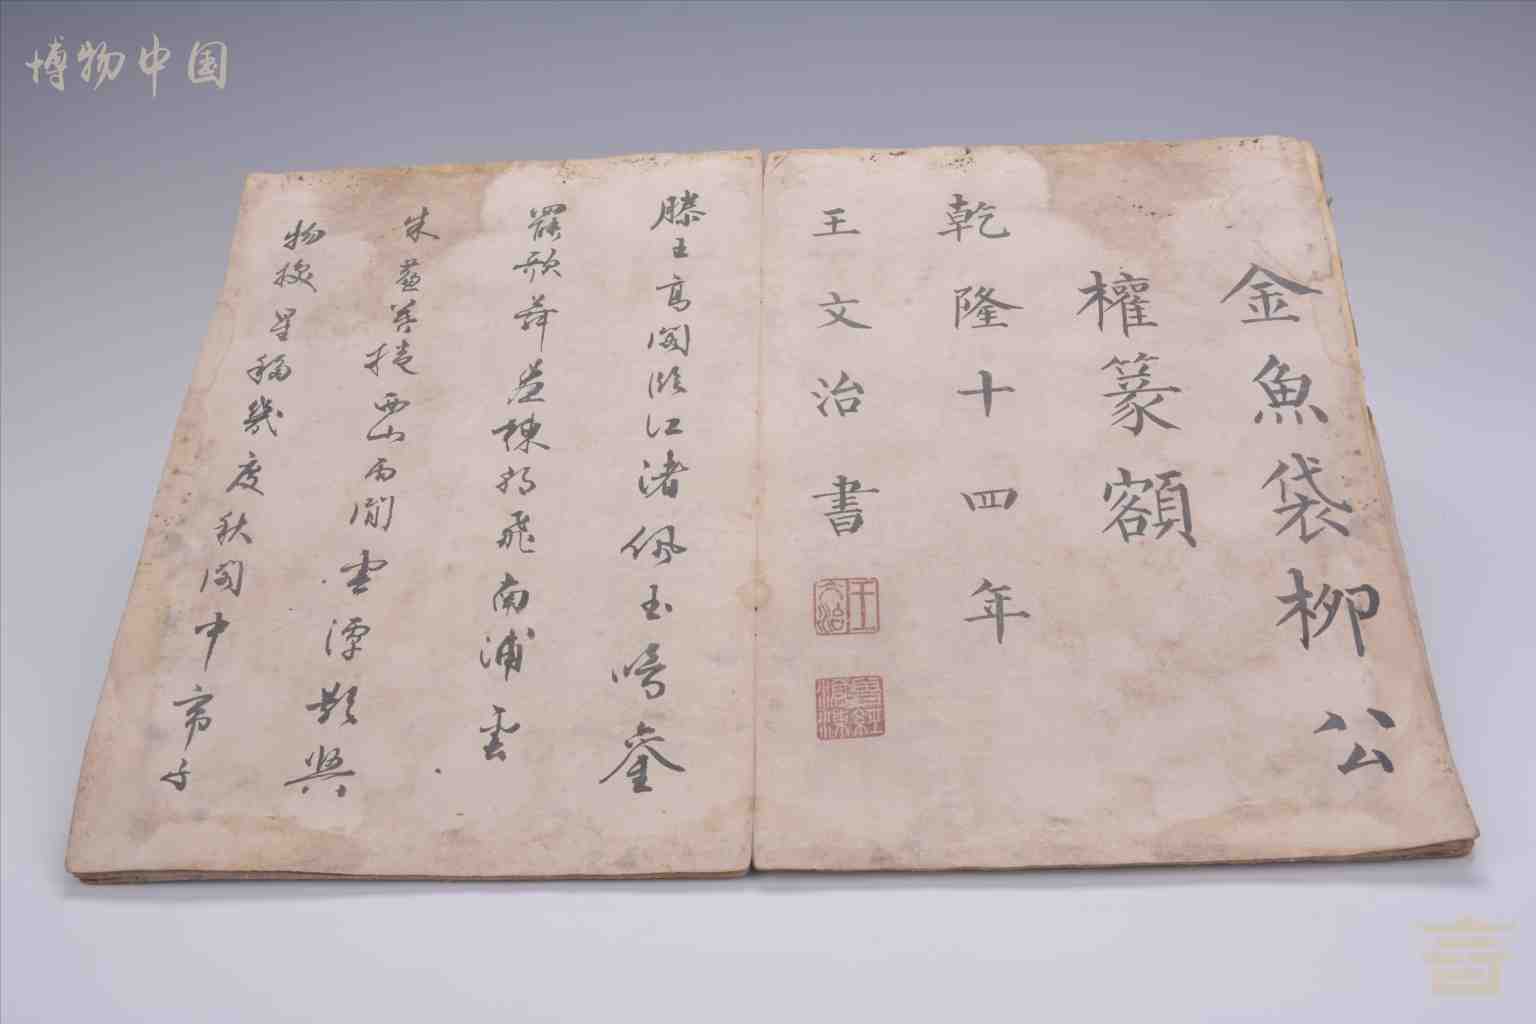 博物中国
金魚袋柳公
權篆額
乾隆十四年
王文治書
王文治
滕王高閣臨江渚佩玉鳴鑾
罷歌舞畫棟朝飛南浦雲
朱簾暮捲西山雨閒雲潭影與
物換星移幾度秋閣中帝子